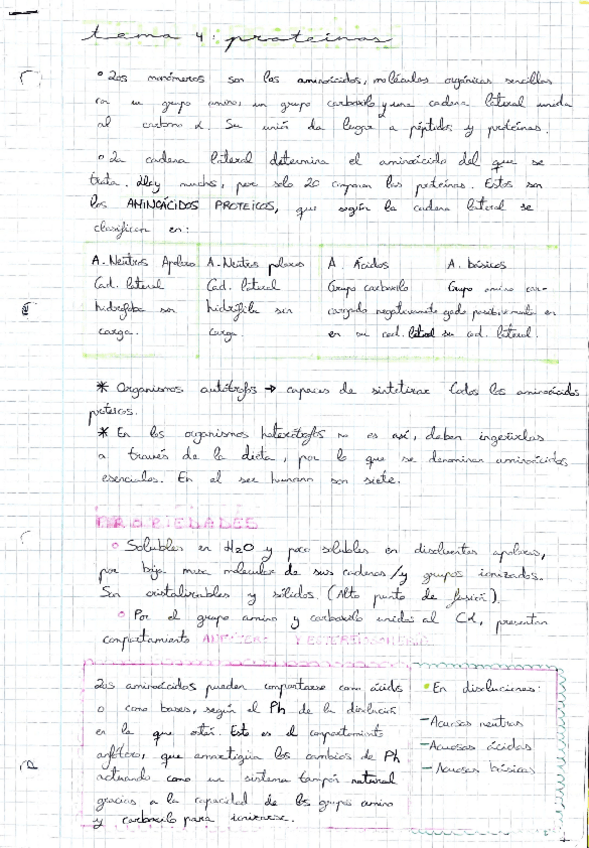 tema 4: proteinas
• Los monómeros son los aminoácidos, moléculas orgánicas sencillas
con un grupo amino, un grupo carboxilo y una cadena lateral unida
al carbono α. Su unión da lugar a péptidos y proteínas.
• La cadena lateral determina el aminoácido del que se
trata. Hay muchos, pero solo 20 componen las proteínas. Estos son
los AMINOÁCIDOS PROTEICOS, que según la cadena lateral se
clasifican en:
A. Neutros Apolares
Cad. lateral
hidrófoba sin
carga.
A. Neutros polares
Cad. lateral
hidrófila sin
carga
A. Ácidos
Grupo carboxilo
cargado negativamente
en su cad. lateral
A. básicos
Grupo amino car-
gado positivamente en
su cad. lateral.
* Organismos autótrofos → capaces de sintetizar todos los aminoácidos
proteicos.
* En los organismos heterótrofos no es así, deben ingerirlos
a través de la dieta, por lo que se denominan aminoácidos
esenciales. En el ser humano son siete.
PROPIEDADES
• Solubles en H2O y poco solubles en disolventes apolares,
por baja masa molecular de sus cadenas / y grupos ionizados.
Son cristalizables y sólidos. (Alto punto de fusión).
• Por el grupo amino y carboxilo unidos al Cα, presentan
comportamiento ANFÓTERO Y ESTEREOISOMERÍA
Los aminoácidos pueden comportarse como ácidos
o como bases, según el Ph de la disolución
en la que estén. Esto es el comportamiento
anfótero, que amortigua los cambios de Ph
actuando como un sistema tampón natural
gracias a la capacidad de los grupos amino
y carboxilo para ionizarse.
• En disoluciones:
- Acuosas neutras
- Acuosas ácidas
- Acuosas básicas